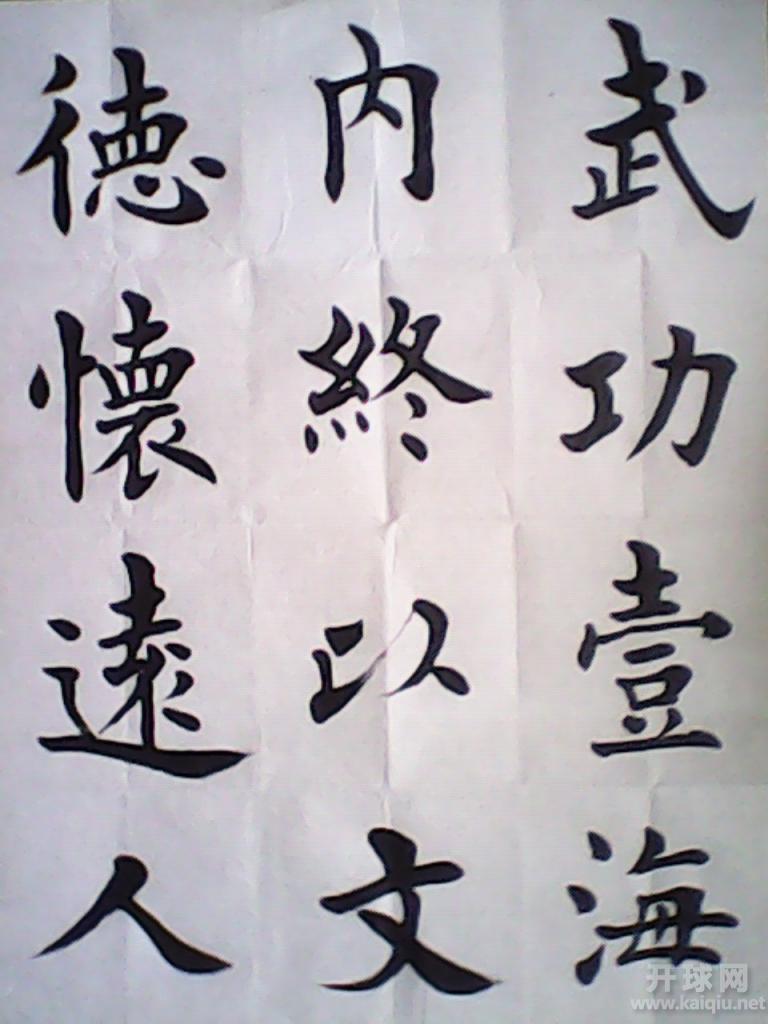 武功壹海
内終以文
德懷遠人
开球网
www.kaiqiu.net